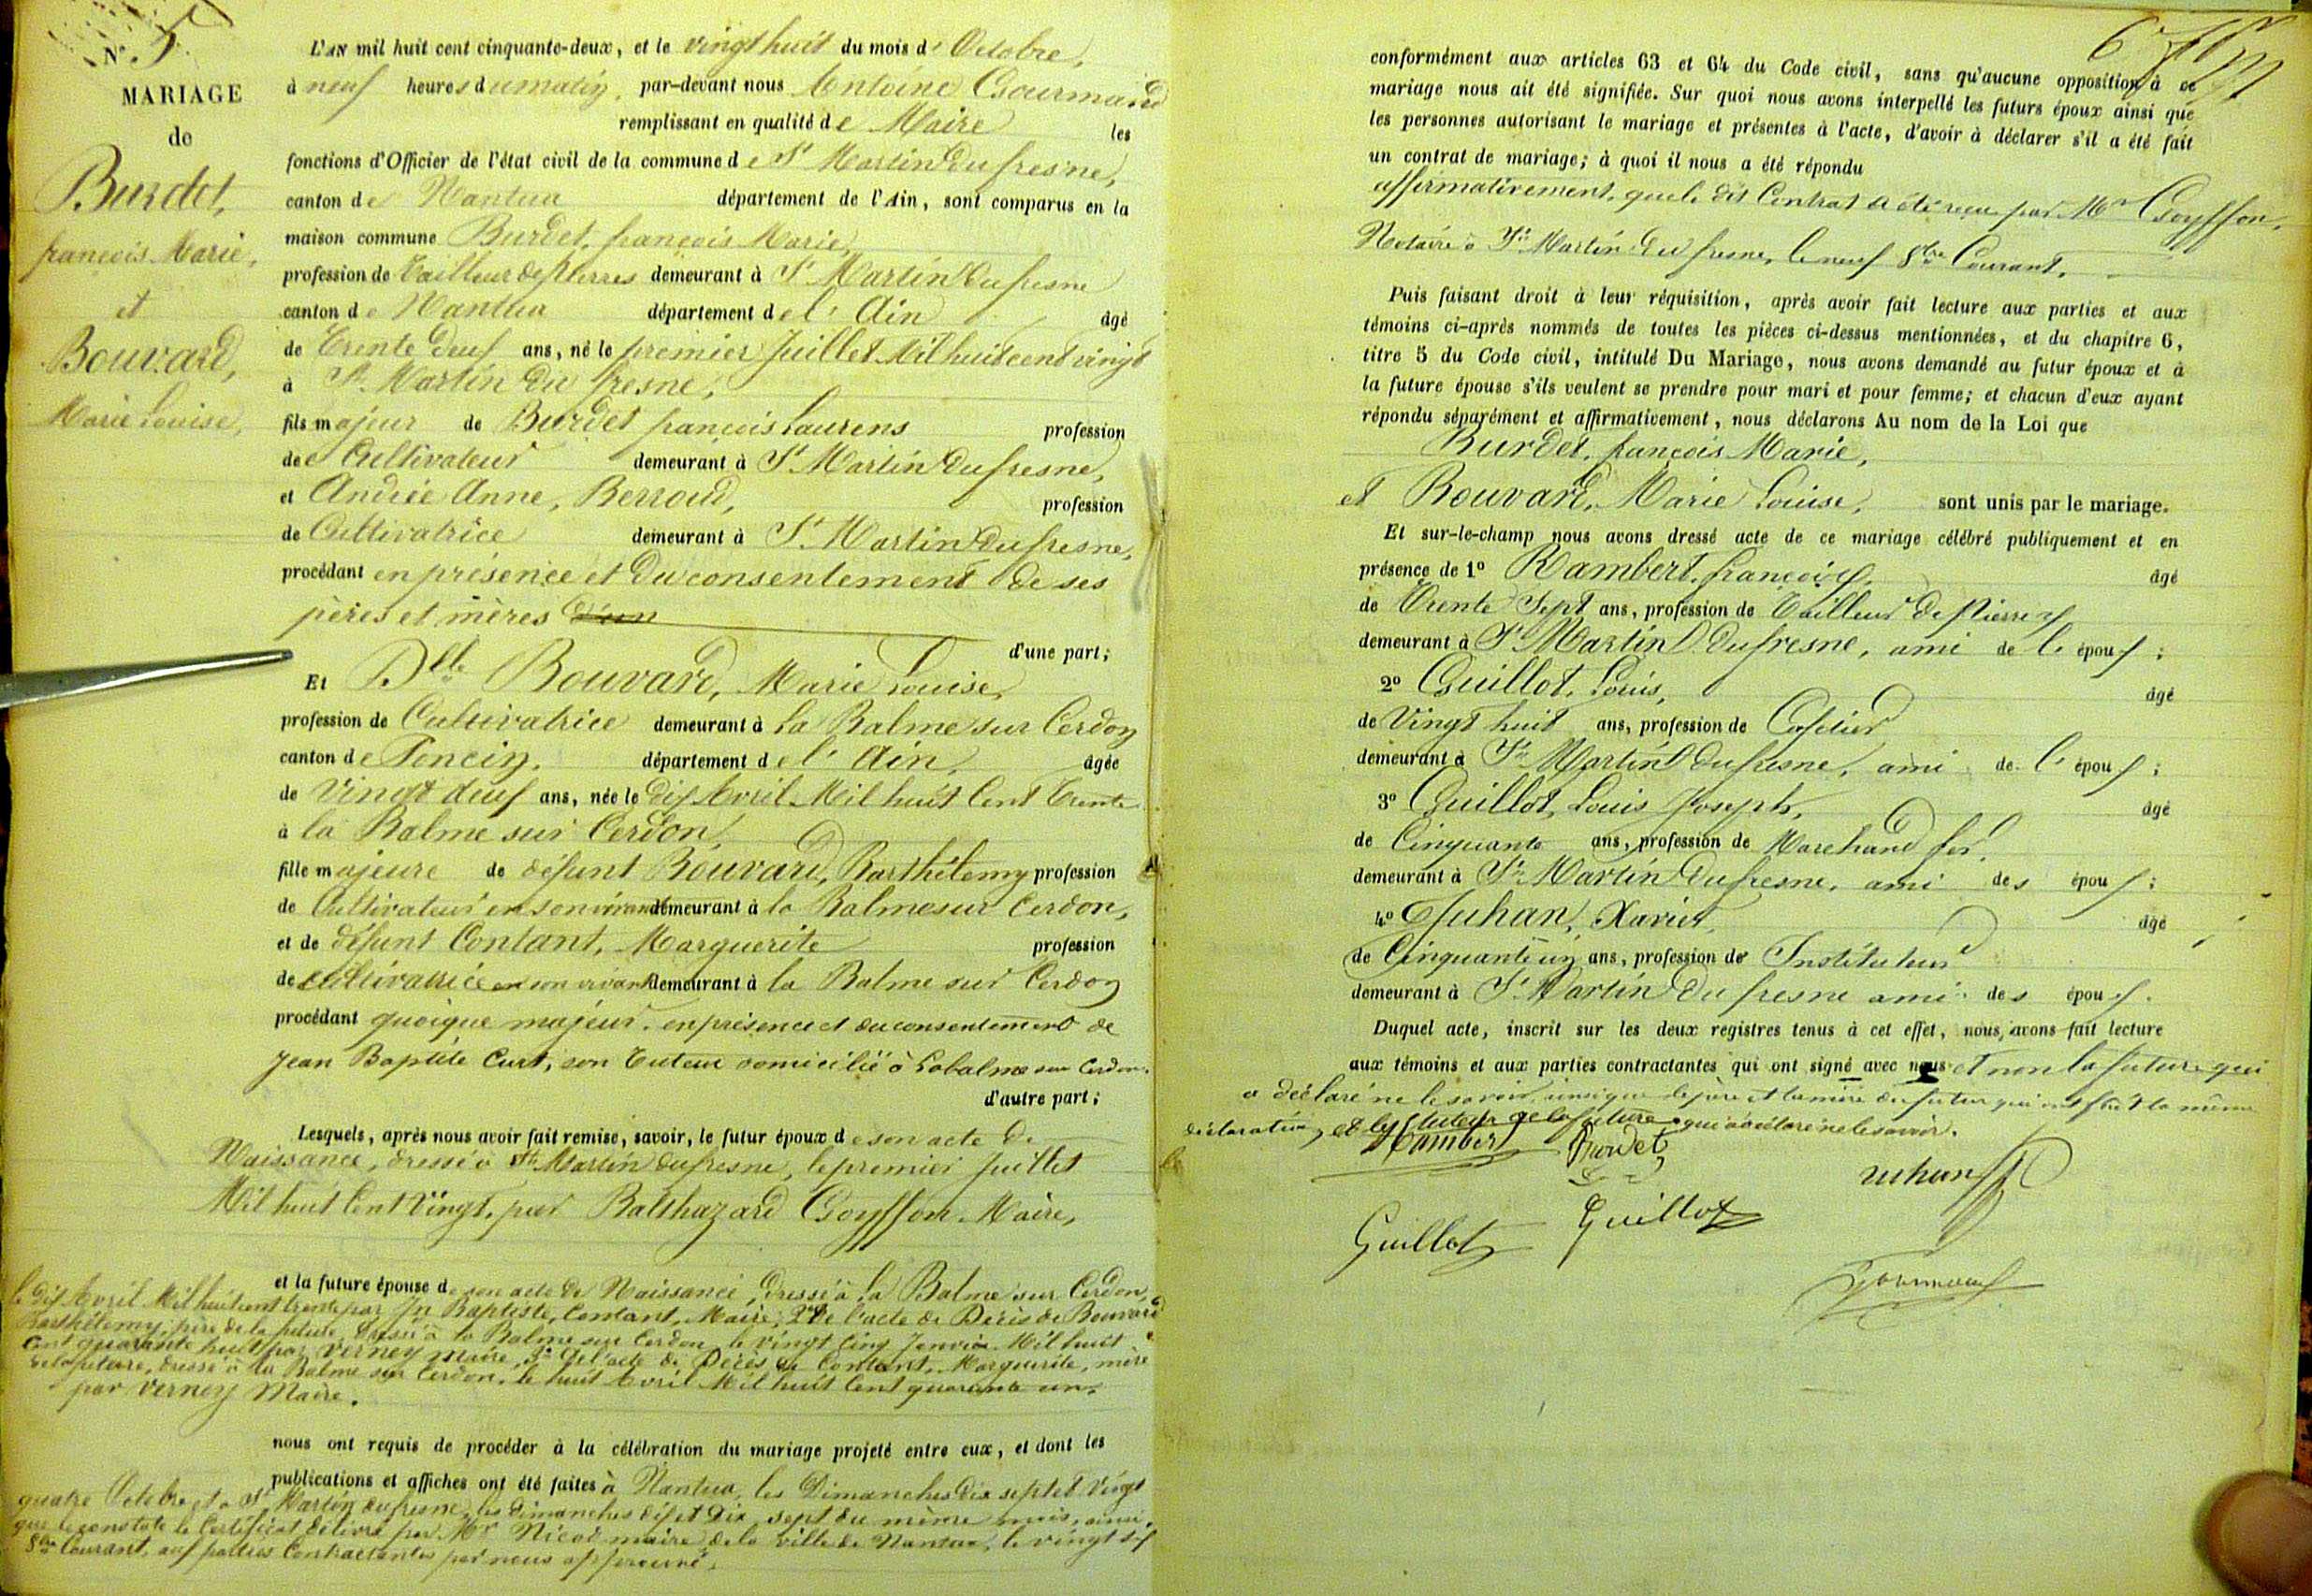 N.º 5
MARIAGE
de
Burdet,
françois Marie,
et
Bouvard,
Marie Louise,
L'AN mil huit cent cinquante-deux, et le vingt huit du mois d' Octobre,
à neuf heures du matin, par-devant nous Antoine
remplissant en qualité de Maire les
fonctions d'Officier de l'état civil de la commune de St Martin du fresne,
canton de Nantua département de l'Ain, sont comparus en la
maison commune Burdet, françois Marie,
profession de Tailleur de pierres demeurant à St Martin du fresne
canton de Nantua département de l' Ain âgé
de Trente deux ans, né le premier Juillet Mil huit cent vingt
à St Martin du fresne,
fils majeur de Burdet françois Laurens profession
de Cultivateur demeurant à St Martin du fresne,
et Andrée Anne, Berroud, profession
de Cultivatrice demeurant à St Martin du fresne,
procédant en présence et du consentement de ses
pères et mères
d'une part;
Et Dlle Bouvard, Marie Louise,
profession de Cultivatrice demeurant à la Balme sur Cerdon
canton de Poncin, département de l' Ain, âgée
de Vingt deux ans, née le dix Avril Mil huit Cent Trente
à la Balme sur Cerdon,
fille majeure de défunt Bouvard, Barthélemy profession
de Cultivateur en son vivant demeurant à la Balme sur Cerdon,
et de défunt Contant, Marguerite profession
de cultivatrice en son vivant demeurant à la Balme sur Cerdon
procédant quoique majeur, en présence et du consentement de
Jean Baptiste Curt, son Tuteur domicilié à Labalme sur Cerdon.
d'autre part;
Lesquels, après nous avoir fait remise, savoir, le futur époux de son acte de
Naissance, dressé à St Martin du fresne, le premier Juillet
Mil huit Cent Vingt, par Balthazard Goyffon Maire,
et la future épouse de son acte de Naissance, dressé à la Balme sur Cerdon,
le dix Avril Mil huit cent trente par Jn Baptiste, Contant, Maire; 2º De l'acte de Décès de Bouvard
Barthélemy, père de la future, dressé à la Balme sur Cerdon, le vingt Cinq Janvier Mil huit
Cent quarante huit par Verney Maire, 3º De l'acte de Décès de Contant, Marguerite, mère
de la future, dressé à la Balme sur Cerdon, le huit Avril Mil huit Cent quarante un,
par Verney Maire.
nous ont requis de procéder à la célébration du mariage projeté entre eux, et dont les
publications et affiches ont été faites à Nantua, les Dimanches dix sept et Vingt
quatre Octobre et à St Martin du fresne, les dimanches dix et Dix sept du même mois, ainsi
que le constate le Certificat délivré par Mr Nicod maire de la ville de Nantua, le vingt six
8bre Courant, aux parties Contractantes par nous
conformément aux articles 63 et 64 du Code civil, sans qu'aucune opposition à ce
mariage nous ait été signifiée. Sur quoi nous avons interpellé les futurs époux ainsi que
les personnes autorisant le mariage et présentes à l'acte, d'avoir à déclarer s'il a été fait
un contrat de mariage; à quoi il nous a été répondu
affirmativement, que le dit Contrat a été reçu par Mr Goyffon,
Notaire à St Martin du fresne, le neuf 8bre Courant.
Puis faisant droit à leur réquisition, après avoir fait lecture aux parties et aux
témoins ci-après nommés de toutes les pièces ci-dessus mentionnées, et du chapitre 6,
titre 5 du Code civil, intitulé Du Mariage, nous avons demandé au futur époux et à
la future épouse s'ils veulent se prendre pour mari et pour femme; et chacun d'eux ayant
répondu séparément et affirmativement, nous déclarons Au nom de la Loi que
Burdet, françois Marie,
et Bouvard, Marie Louise, sont unis par le mariage.
Et sur-le-champ nous avons dressé acte de ce mariage célébré publiquement et en
présence de 1º Rambert, françois, âgé
de Trente Sept ans, profession de Tailleur de Pierres
demeurant à St Martin du fresne, ami de l' époux;
2º Guillot, Louis, âgé
de Vingt huit ans, profession de
demeurant à St Martin du fresne, ami de l' époux;
3º Guillot, Louis Joseph, âgé
de Cinquante ans, profession de Marchand
demeurant à St Martin du fresne, ami des époux;
4º Juhan, Xavier, âgé
de Cinquante un ans, profession de Instituteur
demeurant à St Martin du fresne ami des époux.
Duquel acte, inscrit sur les deux registres tenus à cet effet, nous avons fait lecture
aux témoins et aux parties contractantes qui ont signé avec nous et non la future qui
a déclaré ne le savoir, ainsi que le père et la mère du futur qui ont fait la même
déclaration, et le tuteur de la future qui a déclaré ne le savoir.
Rambert Burdet
Juhan
Guillot Guillot